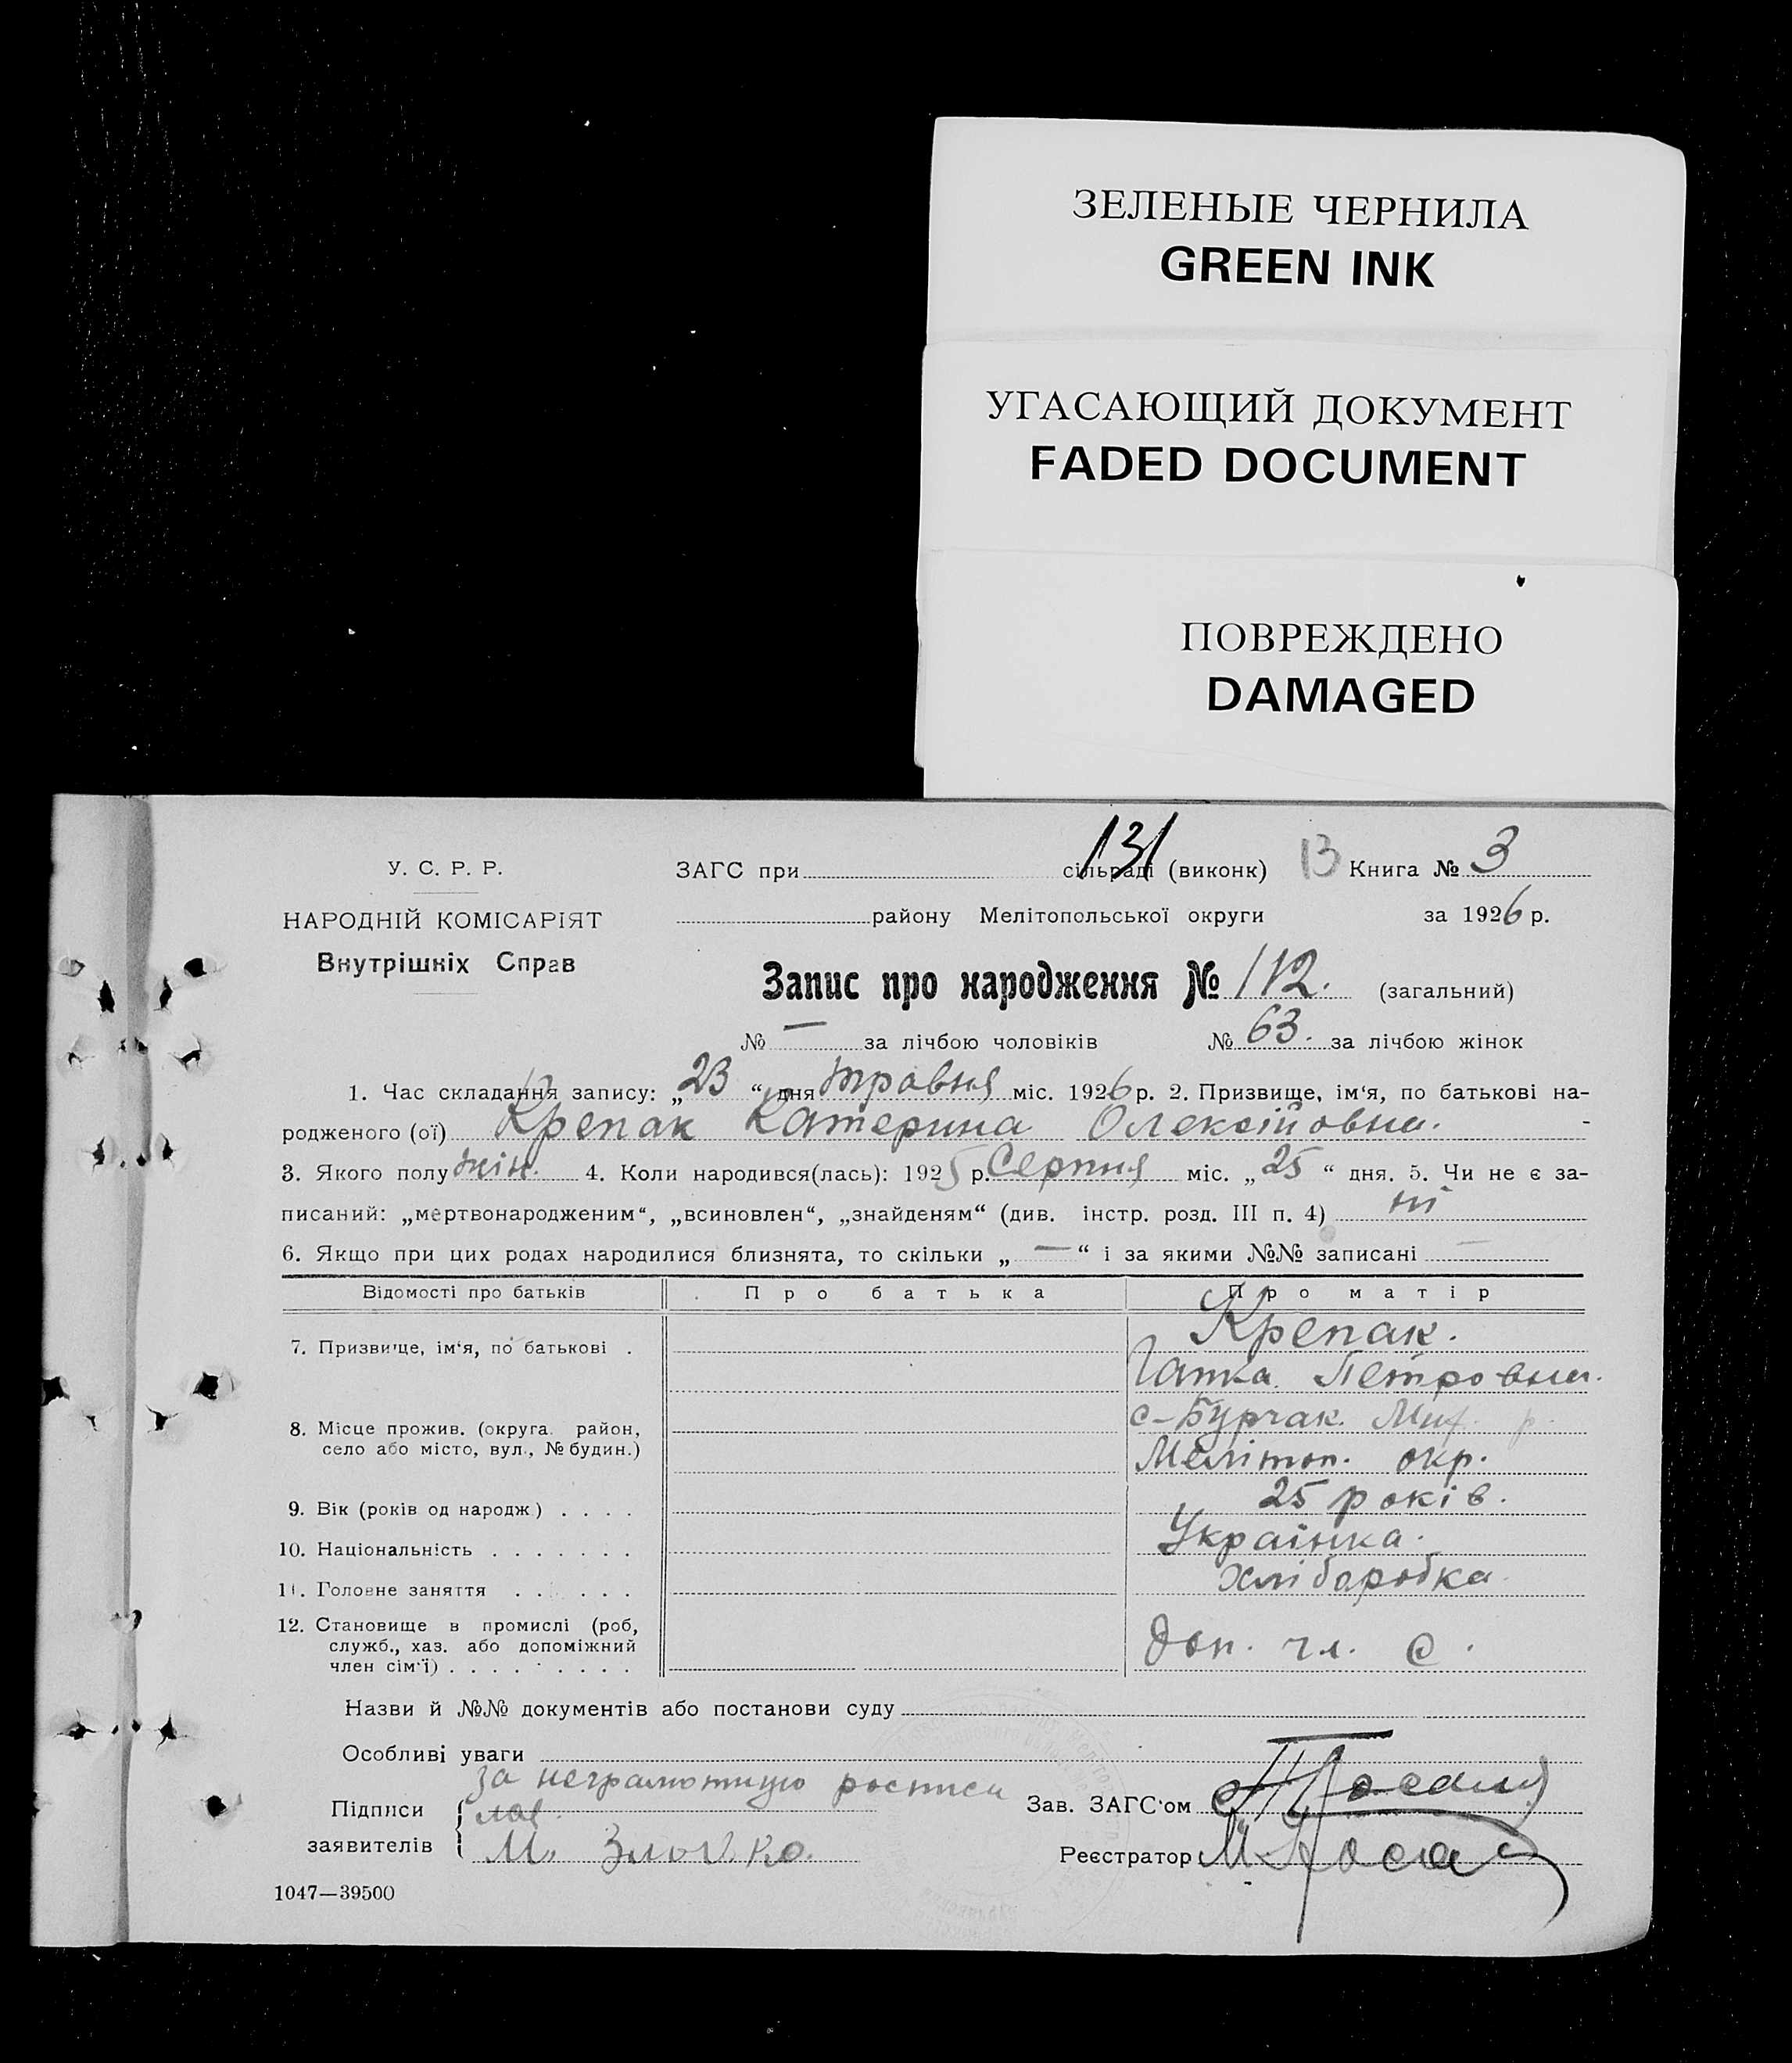 ЗЕЛЕНЫЕ ЧЕРНИЛА
GREEN INK
УГАСАЮЩИЙ ДОКУМЕНТ
FADED DOCUMENT
ПОВРЕЖДЕНО
DAMAGED
131
У. С. Р. Р. ЗАГС при сільраді (виконк) 13 Книга № 3
НАРОДНІЙ КОМІСАРІЯТ району Мелітопольської округи за 1926 р.
Внутрішніх Справ
Запис про народження № 112. (загальний)
№ — за лічбою чоловіків № 63. за лічбою жінок
1. Час складання запису: „23“ дня травня міс. 1926 р. 2. Призвище, ім'я, по батькові на-
родженого (ої) Крепак Катерина Олексійовна.
3. Якого полу жін. 4. Коли народився(лась): 1925 р. Серпня міс. „25“ дня. 5. Чи не є за-
писаний: „мертвонародженим“, „всиновлен“, „знайденям“ (див. інстр. розд. III п. 4) ні
6. Якщо при цих родах народилися близнята, то скільки „—“ і за якими №№ записані —
Відомості про батьків Про батька Про матір
7. Призвище, ім'я, по батькові . Крепак.
Гапка Петровна.
8. Місце прожив. (округа район, с-Бурчак. Мих. р.
село або місто, вул., № будин.) Мелітоп. окр.
9. Вік (років од народж) . . . . 25 років.
10. Національність . . . . . . . Українка.
11. Головне заняття . . . . . . Хліборобка
12. Становище в промислі (роб,
служб., хаз. або допоміжний доп. чл. с.
член сім'ї) . . . . . . . . .
Назви й №№ документів або постанови суду
Особливі уваги
за неграмотную росписа
Підписи лав. Зав. ЗАГС'ом
заявителів М.
Реєстратор
1047—39500